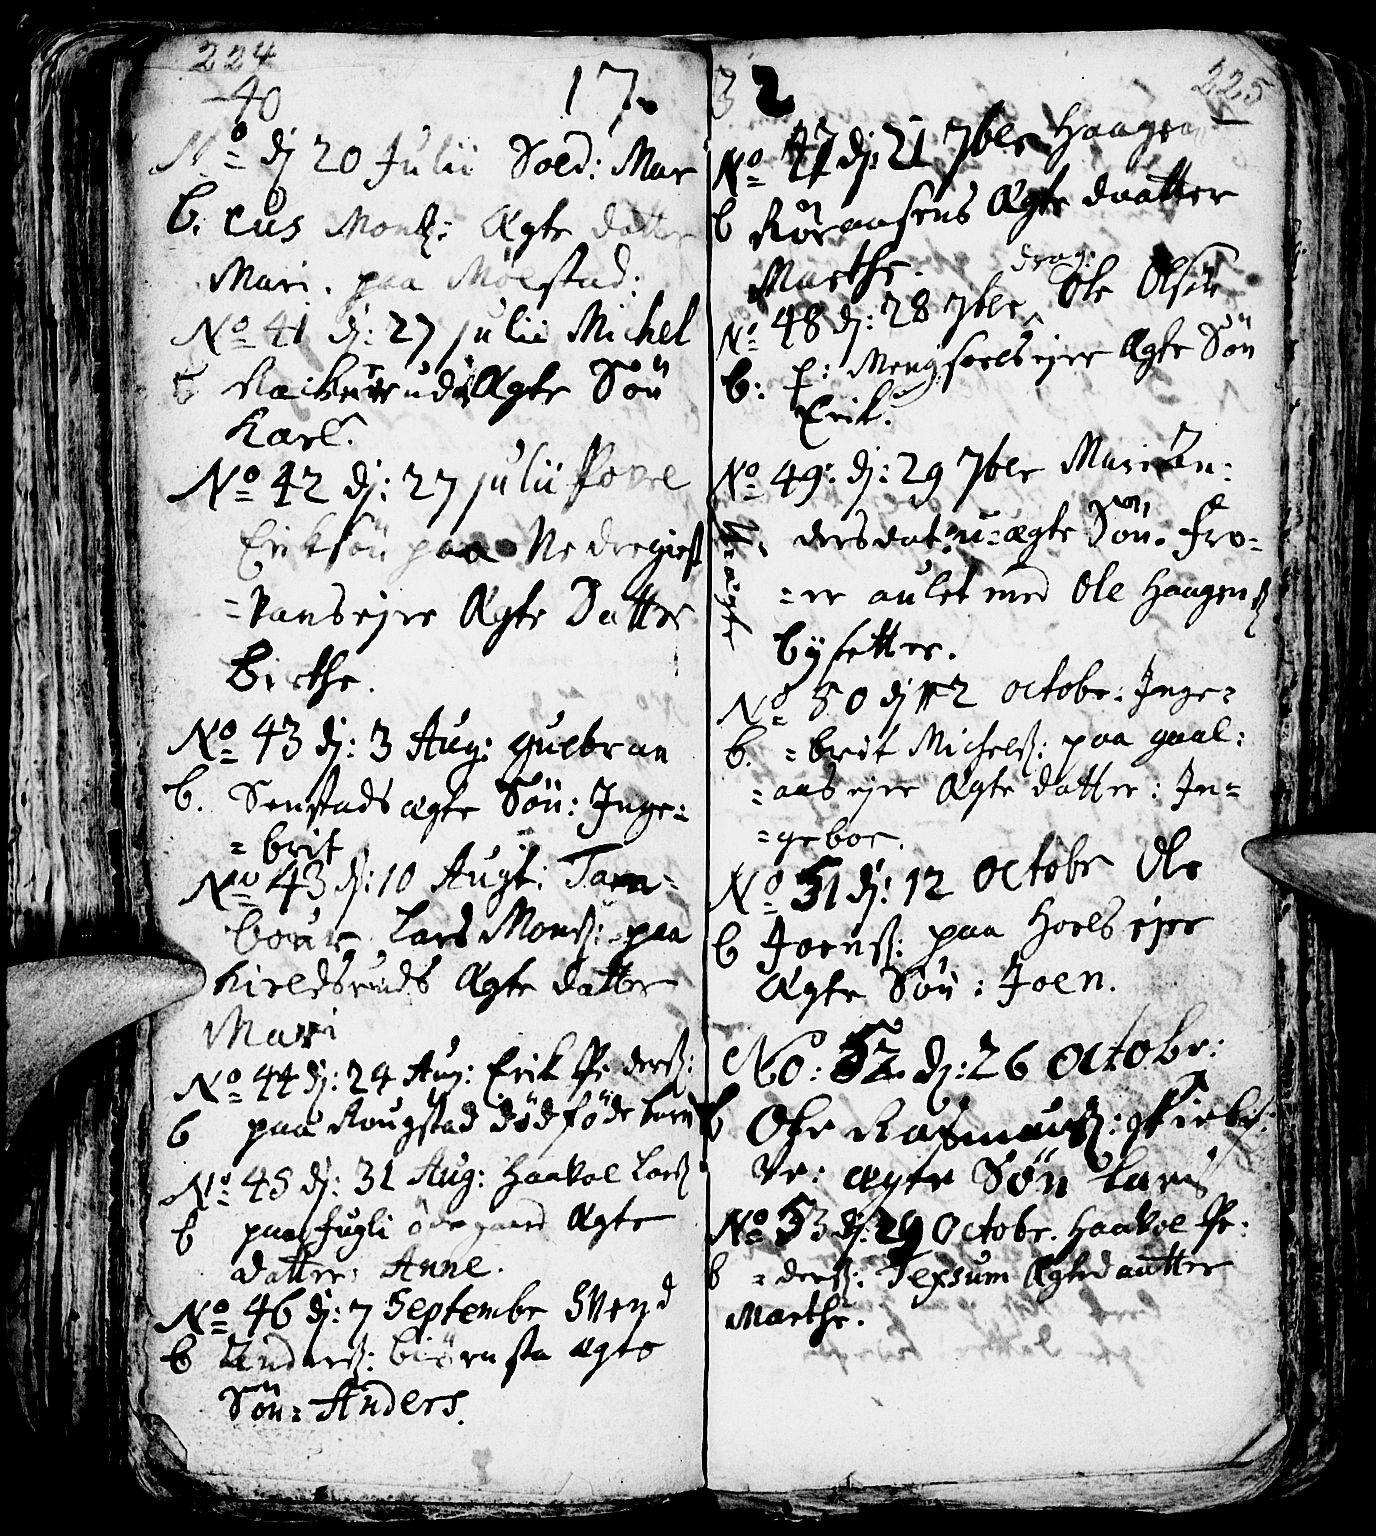 224
40
17.
No dj 20 Julii Sold: Mar
b. cus Montz: Ægte datter
Mari. paa Mölstad:
No 41 dj: 27 julii Michel
b Ægte Sön
Karl.
No 42 dj: 27 julii Povel
Eriksön paa Nedregiest
=vansejer Ægte Datter
Birthe.
No 43 dj: 3 Aug: gulbran
b. Senstads ægte Sön: Inge=
=brit
No 43 dj: 10 Augt: Tam=
bour Lars Monß: paa
Ægte datter
Mari
No 44 dj: 24 Aug: Erik Pederß:
b paa Rougstad dödföde barn
No 45 dj: 31 Aug: Haakol Larß
b paa fugli ödegaard Ægte
datter: Anne.
No 46 dj: 7 Septembr Svend
b Anderß: biörnsta ægte
Sön: Anders.
32
225
No 47 dj: 21 7ber Haagen
b Röransens Ægte daatter
Marthe.
drag:
No 48 dj: 28 7ber Ole Olsön
b: p: Mengshoelsejer Ægte Sön
Erik.
No 49: dj: 29 7ber Mari An:
dersdat: u-ægte Sön. fro=
U-ægte
=er aulet med Ole Haagenß
bysetter.
No 50 dj 12 octobr: Inge=
b. =brit Michelß: paa gaal:
=aasejer Ægte datter: In=
=gebor.
No 51 dj: 12 Octobr Ole
b Joenß: paa Hoelsejer
Ægte Sön: Joen.
No: 52 dj: 26 Octobr:
b Ole Rasmusß:
ægte Sön Lars
No 53 dj: 29 Octobr. Haakol Pe:
b =derß: Jexsum Ægte daatter
Marthe.